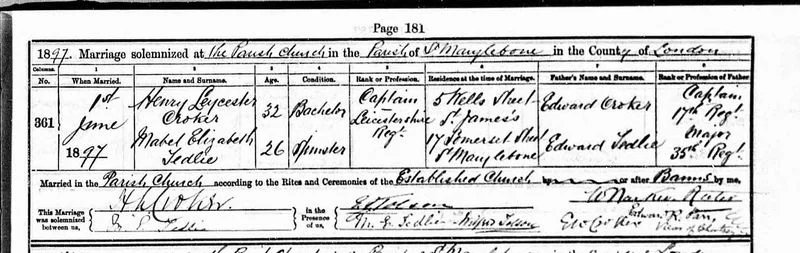 Page 181
1897. Marriage solemnized at the Parish Church in the Parish of St Marylebone in the County of London
Columns. 1 2 3 4 5 6 7 8
No. When Married. Name and Surname. Age. Condition. Rank or Profession. Residence at the time of Marriage. Father's Name and Surname. Rank or Profession of Father
361 1st June 1897 Henry Leycester Croker 32 Bachelor Captain Leicestershire Regt. 5 Wells Street St James's Edward Croker Captain 17th Regt.
Mabel Elizabeth Tedlie 26 Spinster 17 Somerset Street St Marylebone Edward Tedlie Major 35th Regt.
Married in the Parish Church according to the Rites and Ceremonies of the Established Church by or after Banns by me,
This Marriage was solemnized between us,
H L Croker
M E Tedlie
in the Presence of us,
Tedlie
Edward R.